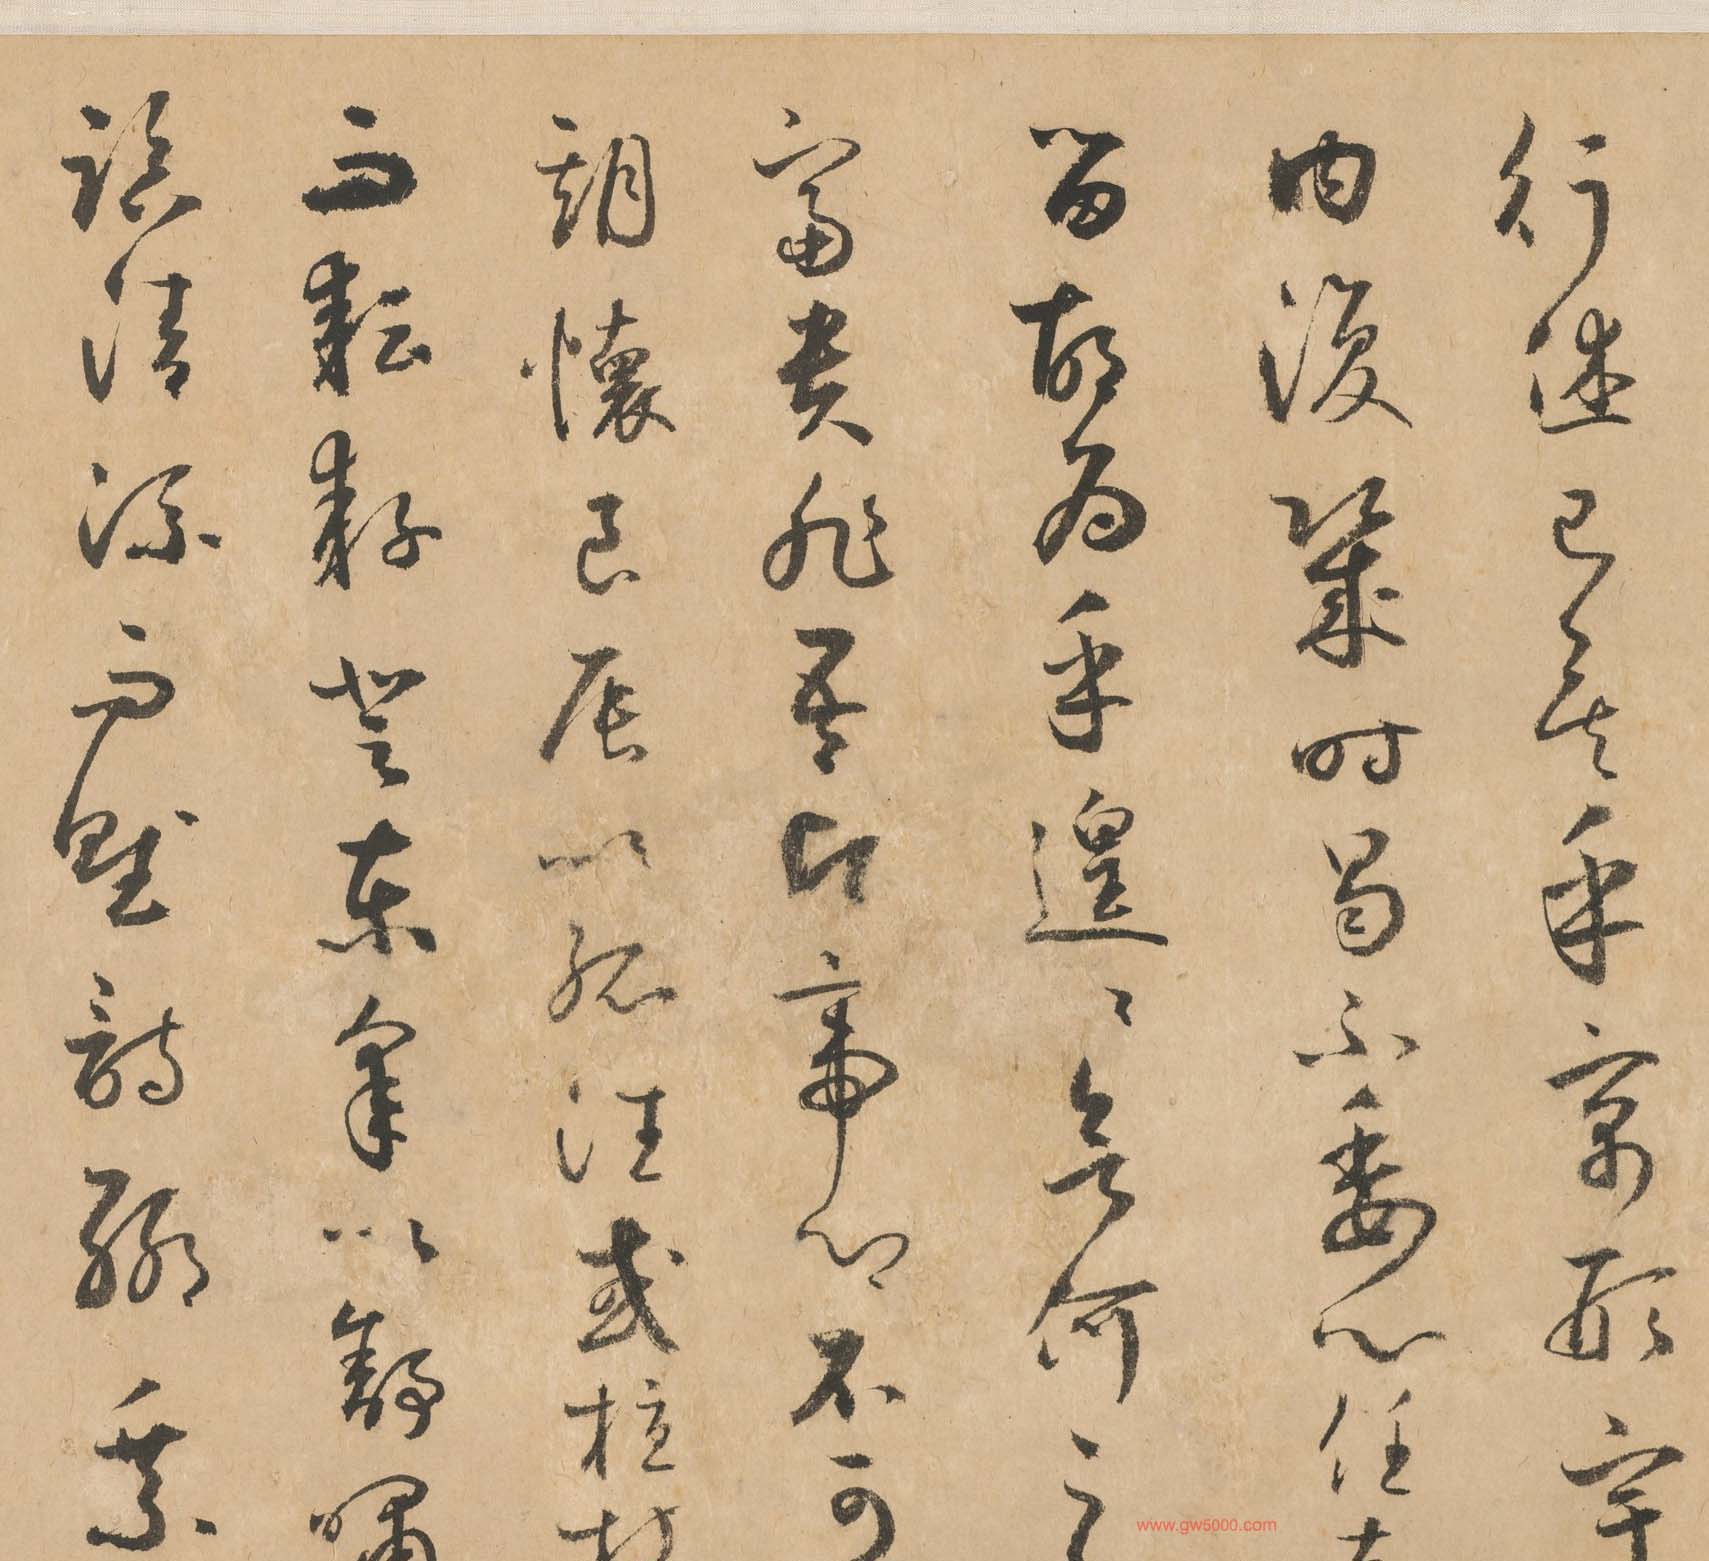 行已矣乎寓形宇
內復幾時曷不委心任去
留胡為乎遑〻何之
富貴非吾願帝鄉不可
期懷良辰以孤往或植杖
而耘耔登東皋以舒嘯
臨清流而賦詩聊乘
www.gw5000.com